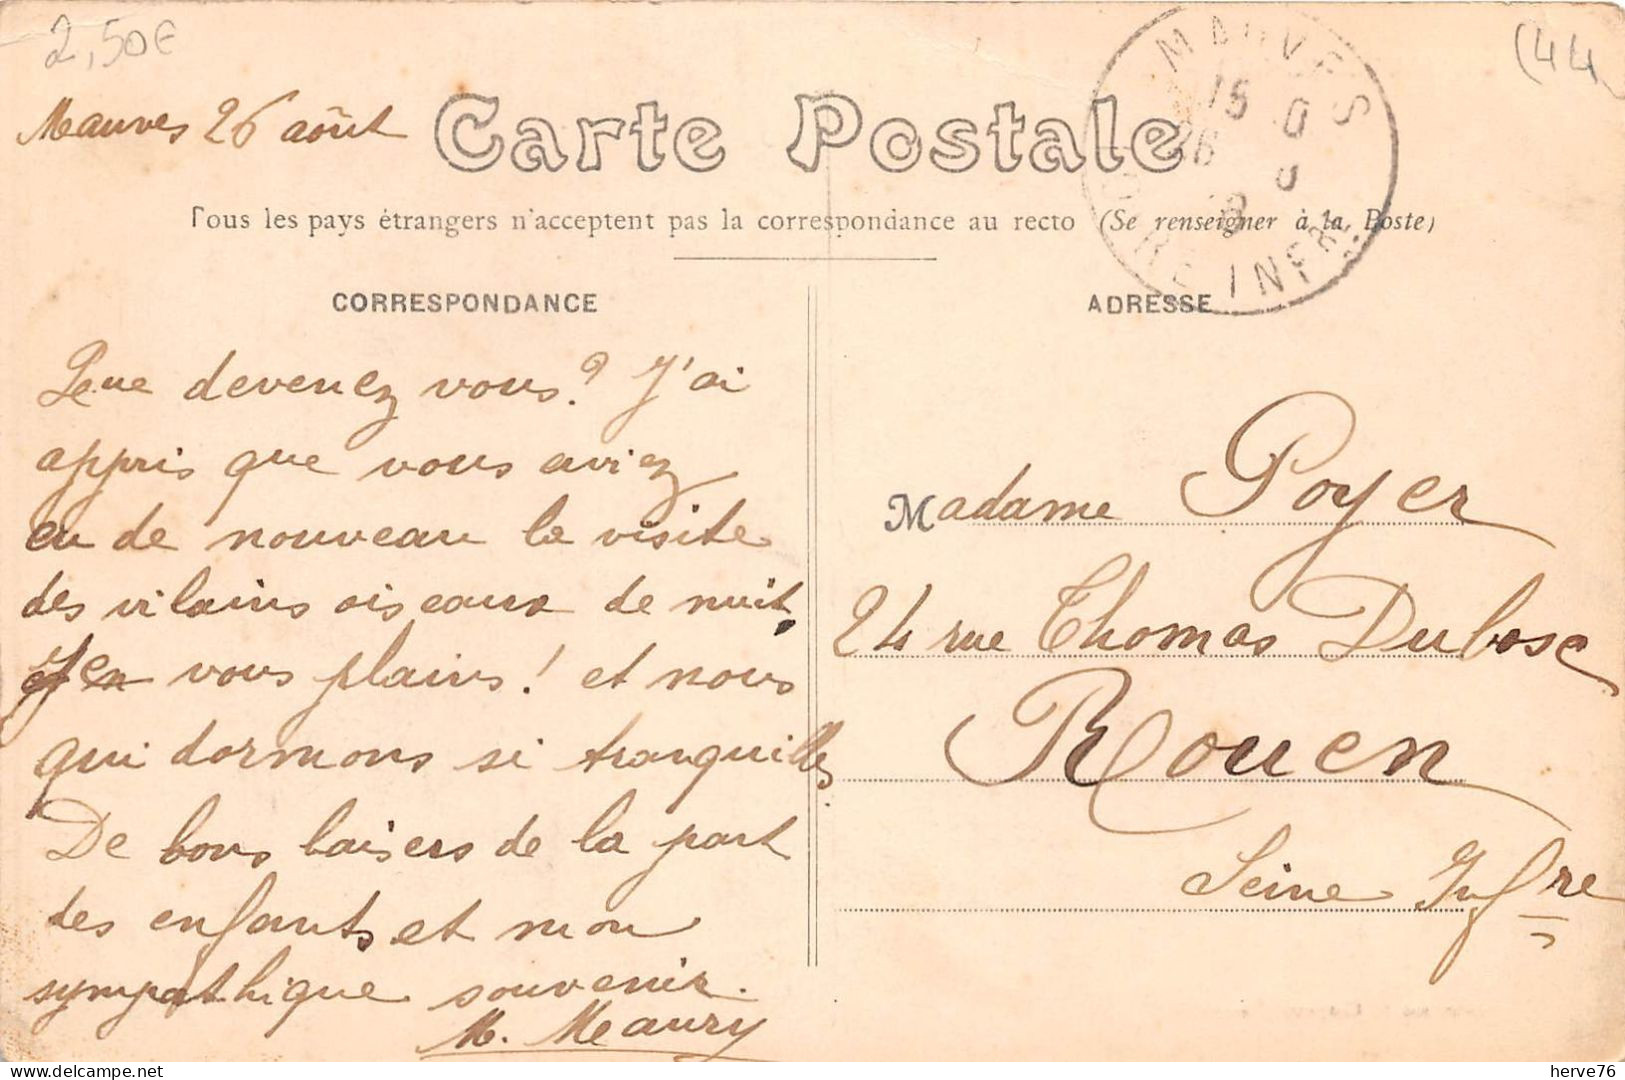 2,50€
(44
Mauves 26 août
Carte Postale
MAUVES
LOIRE INFRE
18
26
8
Tous les pays étrangers n'acceptent pas la correspondance au recto (Se renseigner à la Poste)
CORRESPONDANCE
ADRESSE
Que devenez vous? J'ai
appris que vous aviez
eu de nouveau la visite
des vilains oiseaux de nuit.
J'en vous plains! et nous
qui dormons si tranquilles.
De bons baisers de la part
des enfants et mon
sympathique souvenir.
M. Meaury
Madame Poyer
24 rue Thomas Dubosc
Rouen
Seine Infre
delcampe.net
herve76